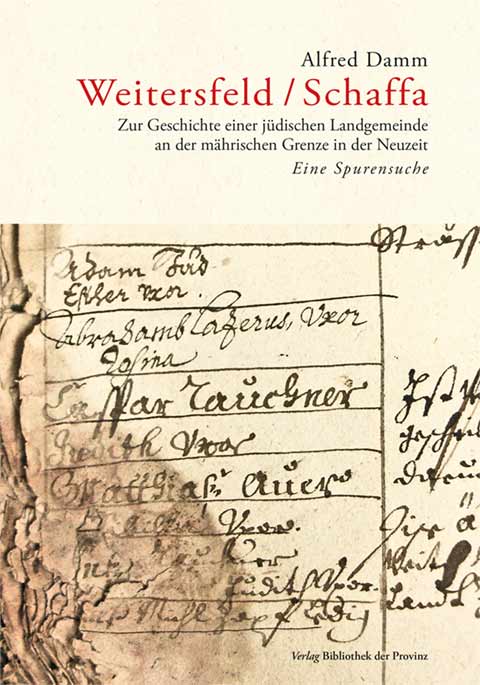 Alfred Damm
Weitersfeld / Schaffa
Zur Geschichte einer jüdischen Landgemeinde
an der mährischen Grenze in der Neuzeit
Eine Spurensuche
Adam Jud
Esther uxor.
Abrahamb Lazerus, uxor
Rosina
Caspar Tauchner
Judith Uxor
Matthiaß Auer
Uxor.
Judith Uxor.
Michl Zapf ledig
Verlag Bibliothek der Provinz